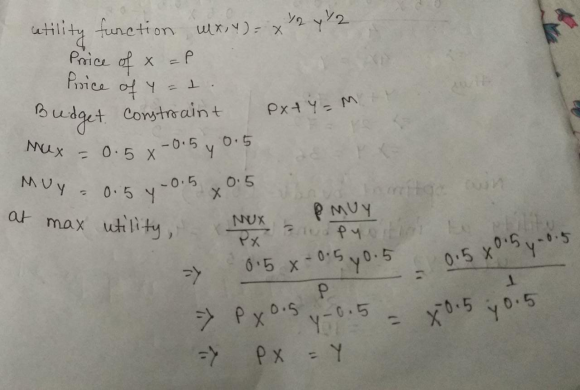 utility function u(x,y) = x^1/2 y^1/2
Price of x = P
Price of y = 1.
Budget constraint Px+y = M
MUx = 0.5 x^-0.5 y^0.5
MUy = 0.5 y^-0.5 x^0.5
at max utility, MUx/Px = P MUy/Py
=> 0.5 x^-0.5 y^0.5 / P = 0.5 x^0.5 y^-0.5 / 1
=> P x^0.5 y^-0.5 = x^-0.5 y^0.5
=> Px = y